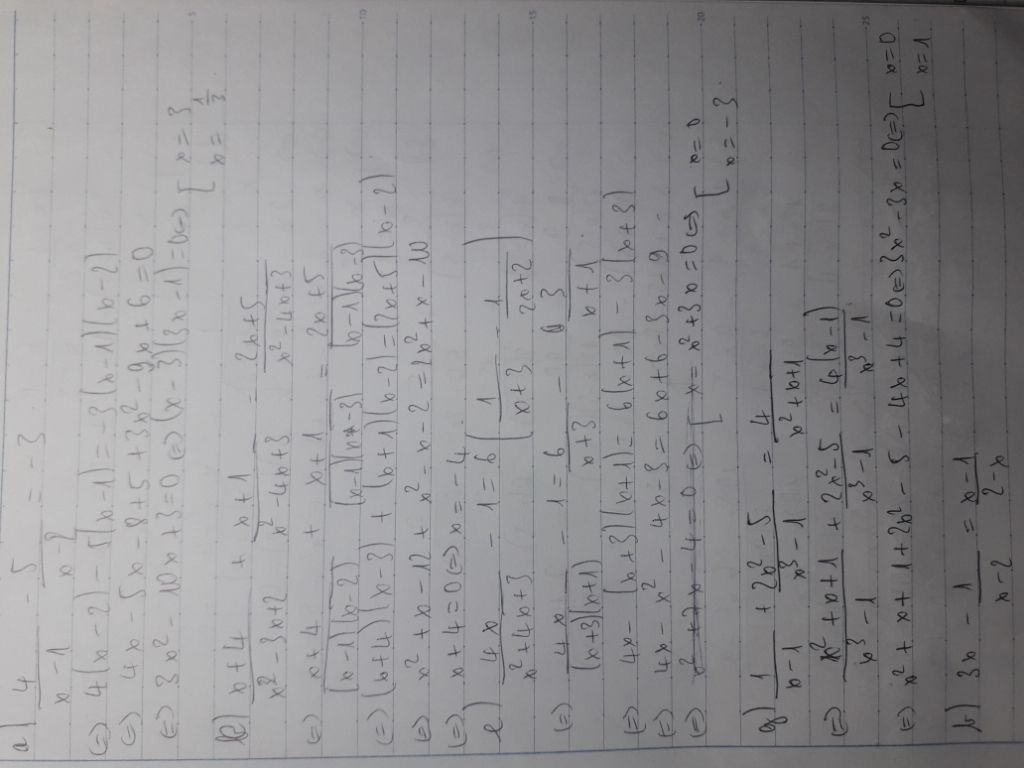 a) 4/(x-1) - 5/(x-2) = -3
(=) 4(x-2) - 5(x-1) = -3(x-1)(x-2)
(=) 4x - 5x - 8 + 5 + 3x² - 9x + 6 = 0
(=) 3x² - 10x + 3 = 0 (=) (x-3)(3x-1) = 0 (=) [ x = 3
x = 1/3
b) (x+4)/(x²-3x+2) + (x+1)/(x²-4x+3) = (2x+5)/(x²-4x+3)
(=) (x+4)/((x-1)(x-2)) + (x+1)/((x-1)(x-3)) = (2x+5)/((x-1)(x-3))
(=) (x+4)(x-3) + (x+1)(x-2) = (2x+5)(x-2)
(=) x² + x - 12 + x² - x - 2 = 2x² + x - 10
(=) x + 4 = 0 (=) x = -4
c) 4x/(x²+4x+3) - 1 = 6(1/(x+3) - 1/(2x+2))
(=) 4x/((x+3)(x+1)) - 1 = 6/(x+3) - 3/(x+1)
(=) 4x - (x+3)(x+1) = 6(x+1) - 3(x+3)
(=) 4x - x² - 4x - 3 = 6x + 6 - 3x - 9
(=) [ x = x² + 3x = 0 (=) [ x = 0
x = -3
d) 1/(x-1) + (2x²-5)/(x³-1) = 4/(x²+x+1)
(=) (x²+x+1)/(x³-1) + (2x²-5)/(x³-1) = 4(x-1)/(x³-1)
(=) x² + x + 1 + 2x² - 5 - 4x + 4 = 0 (=) 3x² - 3x = 0 (=) [ x = 0
x = 1
3x/(x-2) - 1 = (x-1)/(2-x)